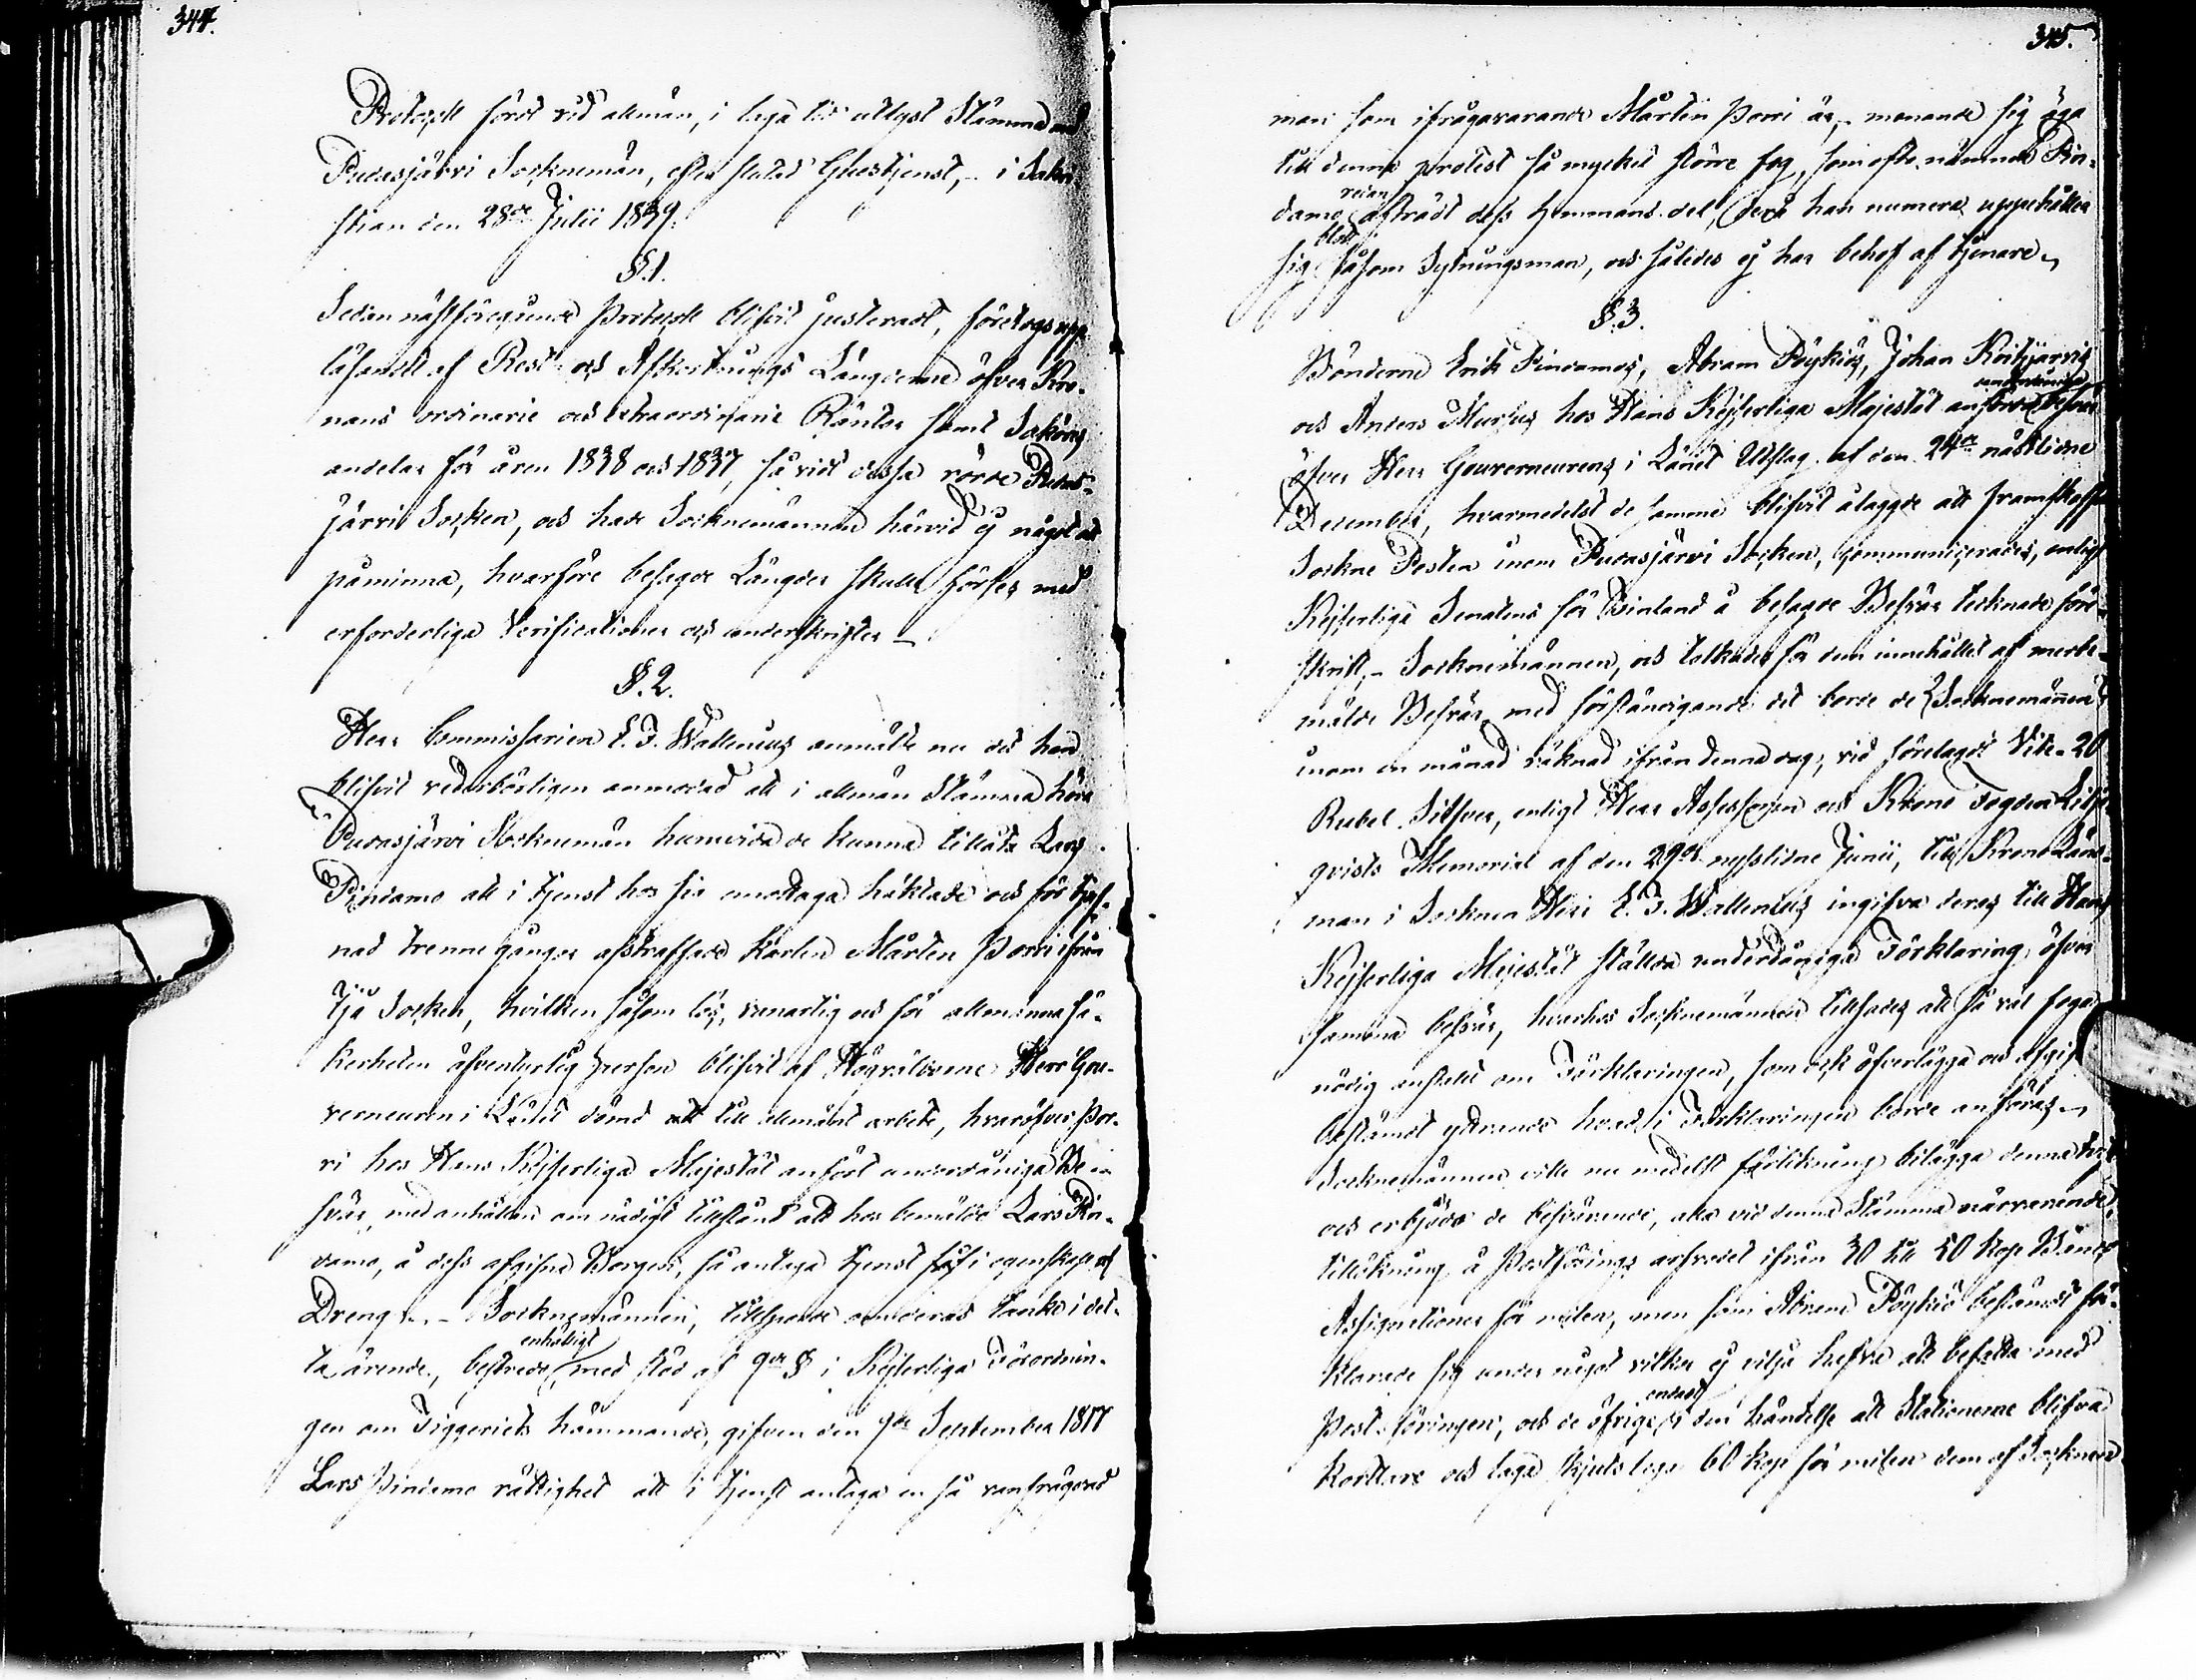 344.
Protocoll fördt vid allmän, i laga tid utlyst Stämma med
Pudasjärvi Socknemän, efter slutad Gudstjenst, - i Sakri-
stian den 28de Julii 1839.
§. 1.
Sedan nästföregående Protocoll blifvit justeradt, företogs upp-
läsandet af Rest- och Afkortnings Längderne öfver Kro-
nans ordinarie och extraordinarie Räntor samt Sakörs
andelar för åren 1838 och 1837, så vidt dessa rörde Pudas-
järvi Socken, och hade Socknemännen härvid ej något att
påminna, hvarföre besagde Längder skulle förses med
erforderliga Verificationer och underskrifter _
§. 2.
Herr Commissarien E. J. Wallenius anmälte nu det han
blifvit vederbörligen anmodad att i allmän Stämma höra
Pudasjärvi Socknemän huruvida de kunna tillåta Lars
Pindamo att i tjenst hos sig emottaga häktade och för tjuf-
nad trenne gånger afstraffade Karlen Mårten Porri ifrån
Ijo Socken, hvilken såsom lös, vanartig och för allmänna sä-
kerheten äfventyrlig person blifvit af Högvälborne Herr Gou-
verneuren i Länet dömd att till allmänt arbete, hvaröfver Por-
ri hos Hans Kejserliga Majestät anfört underdåniga Be-
svär, med anhållan om nådigt tillstånd att hos bemälde Lars Pin-
damo, å dess afgifna Borgen, få antaga tjenst i egenskap af
Dreng. - Socknemännen, tillsporde om deras tanke i det-
ta ärende, bestredo enhälligt med stöd af 9de § i Kejserliga Förordnin-
gen om Tiggeriets hämmande, gifven den 9de September 1817
Lars Pindamo rättighet att i tjenst antaga en så vanfrägdad
345.
man som ifrågavarande Mårten Porri är, - menande sig äga
till denna protest så mycket större fog, som ofta nämnde Pin-
damo redan afträdt dess hemmans del, der å han numera uppehåller
sig blott såsom Sytningsman, och således ej har behof af tjenare _
§. 3.
Bönderne Erik Pindamo, Abram Pöykiö, Johan Korkjärvi
och Anders Murtos hos Hans Kejserliga Majestät anförde underdåniga besvär
öfver Herr Gouverneurens i Länet Utslag af den 24de nästlidne
December, hvarmedelst de samme blifvit ålagde att framskaffa
Sockne Posten inom Pudasjärvi Socken, communicerades, enligt
Kejserliga Senatens för Finland å besagde Besvär tecknade före-
skrift, - Socknemännen, och tolkades för dem innehållet af merbe-
mälde Besvär med förständigande det borde de (Socknemännen)
inom en månad räknad ifrån denna dag, vid förelagdt Vite - 20
Rubel Silfver, enligt Herr Assessoren och Krono Fogden Lilje-
qvists Memorial af den 29de nysslidne Junii, till Krono Läns-
man i Socknen Herr E. J. Wallenius ingifva deras till Hans
Kejserliga Majestät ställda underdåniga Förklaring öfver
samma besvär, hvarhos Socknemännen tillsades att så väl foga
nödig anstalt om Förklaringen, som ock öfverlägga och afgif
bestämdt yttrande hvad i Förklaringen borde anföras _
Socknemännen ville nu medelst förlikning bilägga denna tvist
och erbjödo de besvärande, alla vid denna Stämma närvarande,
tillökning å Postförings arfvodet ifrån 30 till 50 Kop Banco
Assignationer för milen, men som Abram Pöykiö bestämdt för-
klarade sig under något vilkor ej vilja hafva att befatta med
Post-föringen, och de öfrige endast i den händelse att Stationerne blifva
kortare och laga Skjuts lega 60 Kop för milen dem af Socknen